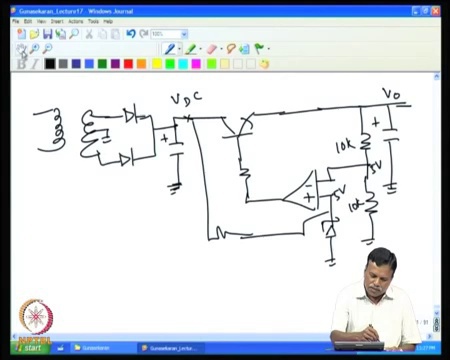 Gunasekaran_Lecture17 - Windows Journal
File Edit View Insert Actions Tools Help
100%
B I
VDC
VO
+
+
10k
-
5V
+
5V
10k
start
Gunasekaran
Gunasekaran_Lectu...